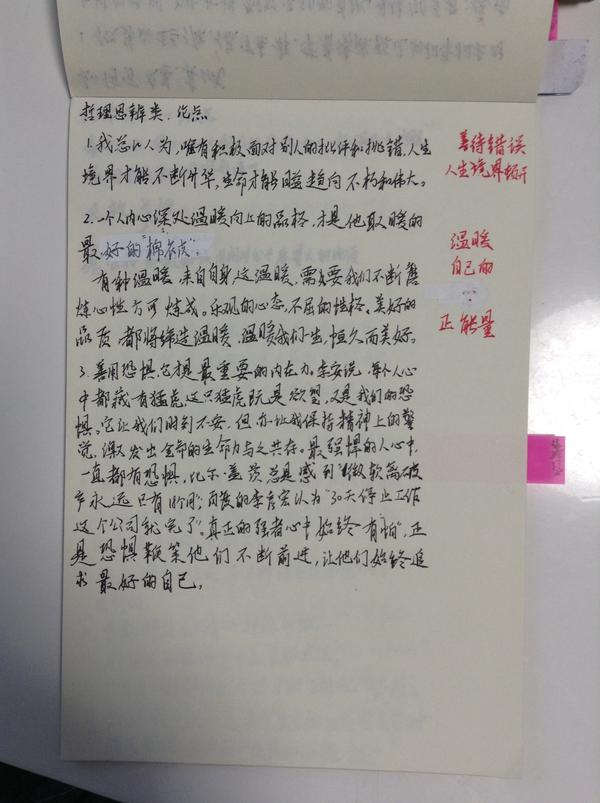 哲理思辨类·论点
1.我总以为,唯有积极面对别人的批评和挑错,人生
境界才能不断升华,生命才能日益趋向不朽和伟大。
善待错误
人生境界拓开
2.一个人内心深处温暖向上的品格,才是他取暖的
最好的“棉衣”。
有种温暖,来自自身,这温暖,需要我们不断
炼心性方可炼成。乐观的心态,不屈的性格,美好的
品质都将缔造温暖,温暖我们一生,恒久而美好。
温暖
自己的
正能量
3.善用恐惧,它才是最重要的内在力。李安说,每个人心
中都藏有猛虎,这只猛虎既是欲望,又是我们的恐
惧。它让我们时刻不安,但亦让我保持精神上的警
觉,激发出全部的生命力与之共存。最强悍的人心中,
一直都有恐惧,比尔·盖茨总是感到“微软离破
产永远只有18个月”;百度的李彦宏认为“30天停止工作
这个公司就完了”。真正的强者心中始终有“怕”,正
是恐惧鞭策他们不断前进,让他们始终追
求最好的自己。